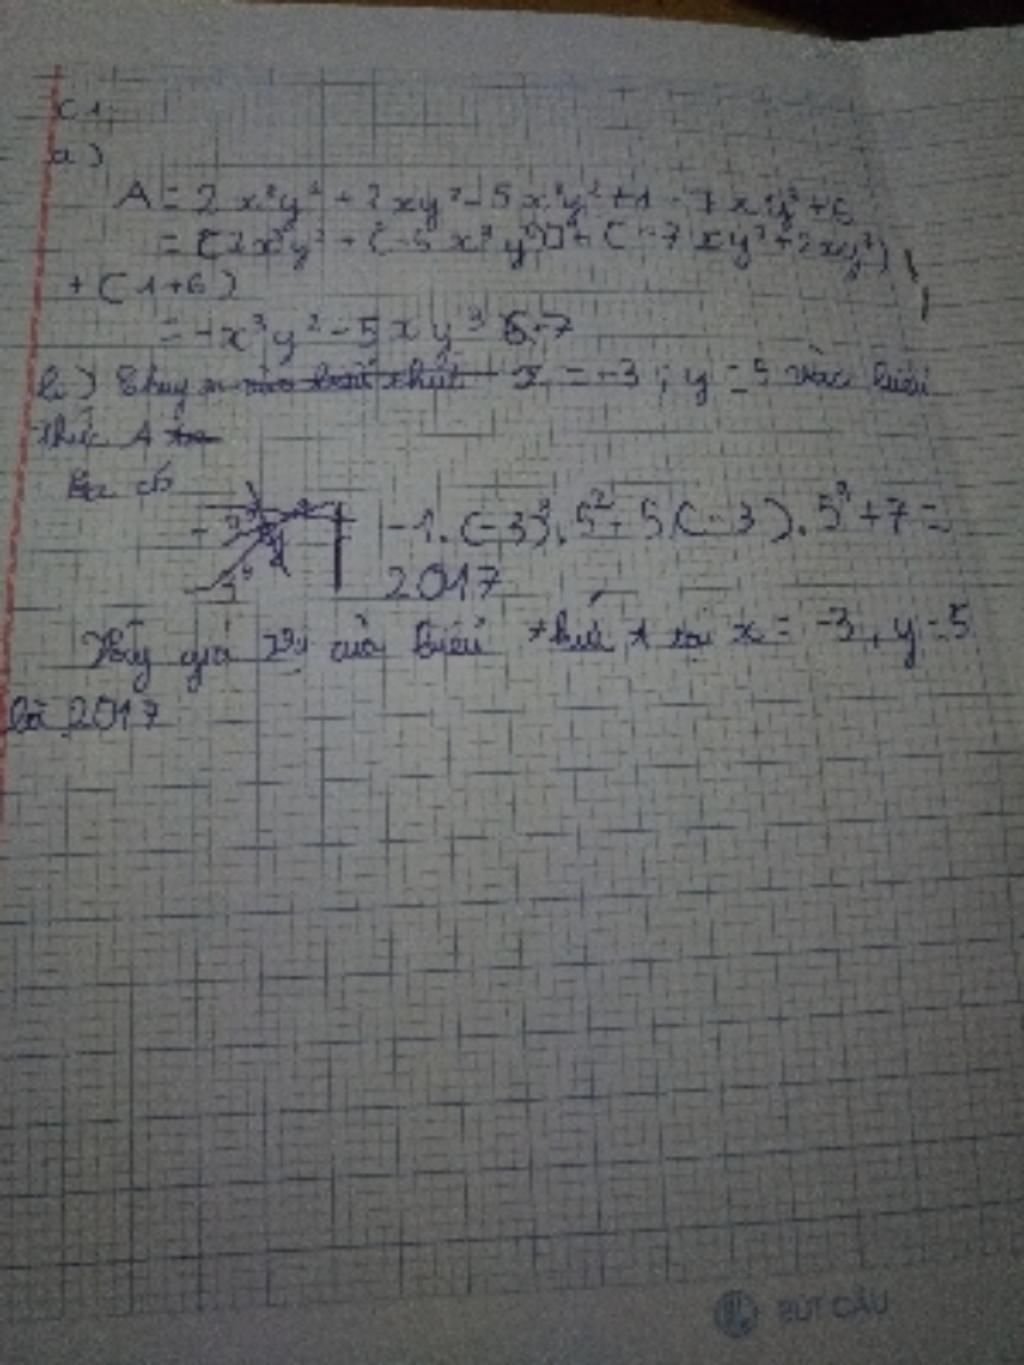 C1
a)
A = 2x³y² + 2xy³ - 5x³y² + 1 - 7xy³ + 6
= [2x³y² + (-5x³y²)] + (-7xy³ + 2xy³)
+ (1+6)
= -x³y² - 5xy³ + 7
b) Thay x = -3 ; y = 5 vào biểu
thức A
ta có
-1.(-3)³.5² - 5(-3).5³ + 7 =
2017
Vậy giá trị của biểu thức A tại x = -3, y = 5
là 2017
BÚT CẦU